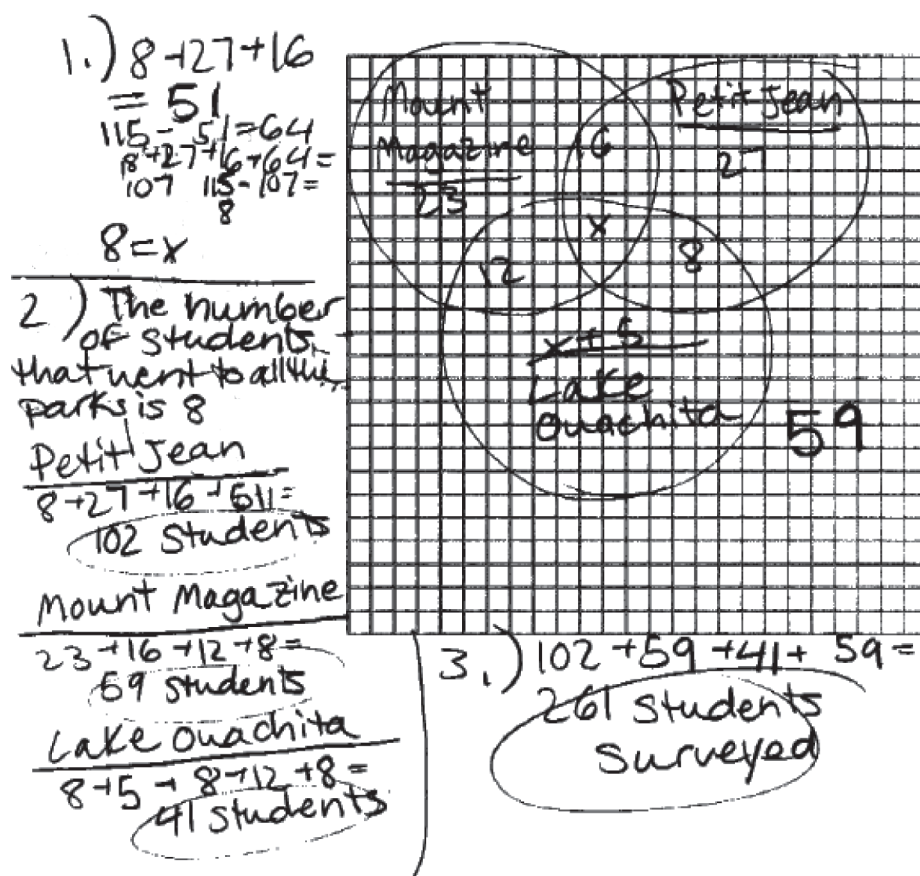 1.) 8+27+16
= 51
115-51=64
8+27+16+64=
107 115-107=
8
8=x
2) The number
of students
that went to all the
parks is 8
Petit Jean
8+27+16+511=
102 students
Mount Magazine
23+16+12+8=
59 students
Lake Ouachita
8+5+8+12+8=
41 students
Mount
Magazine
23
16
Petit Jean
27
x
12
8
x+5
Lake
Ouachita
59
3.) 102+59+41+59=
261 students
surveyed